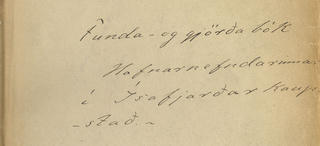 Funda- og gjörða bók
Hafnarnefndarinna
í Ísafjarðar Kaup-
-stað.-